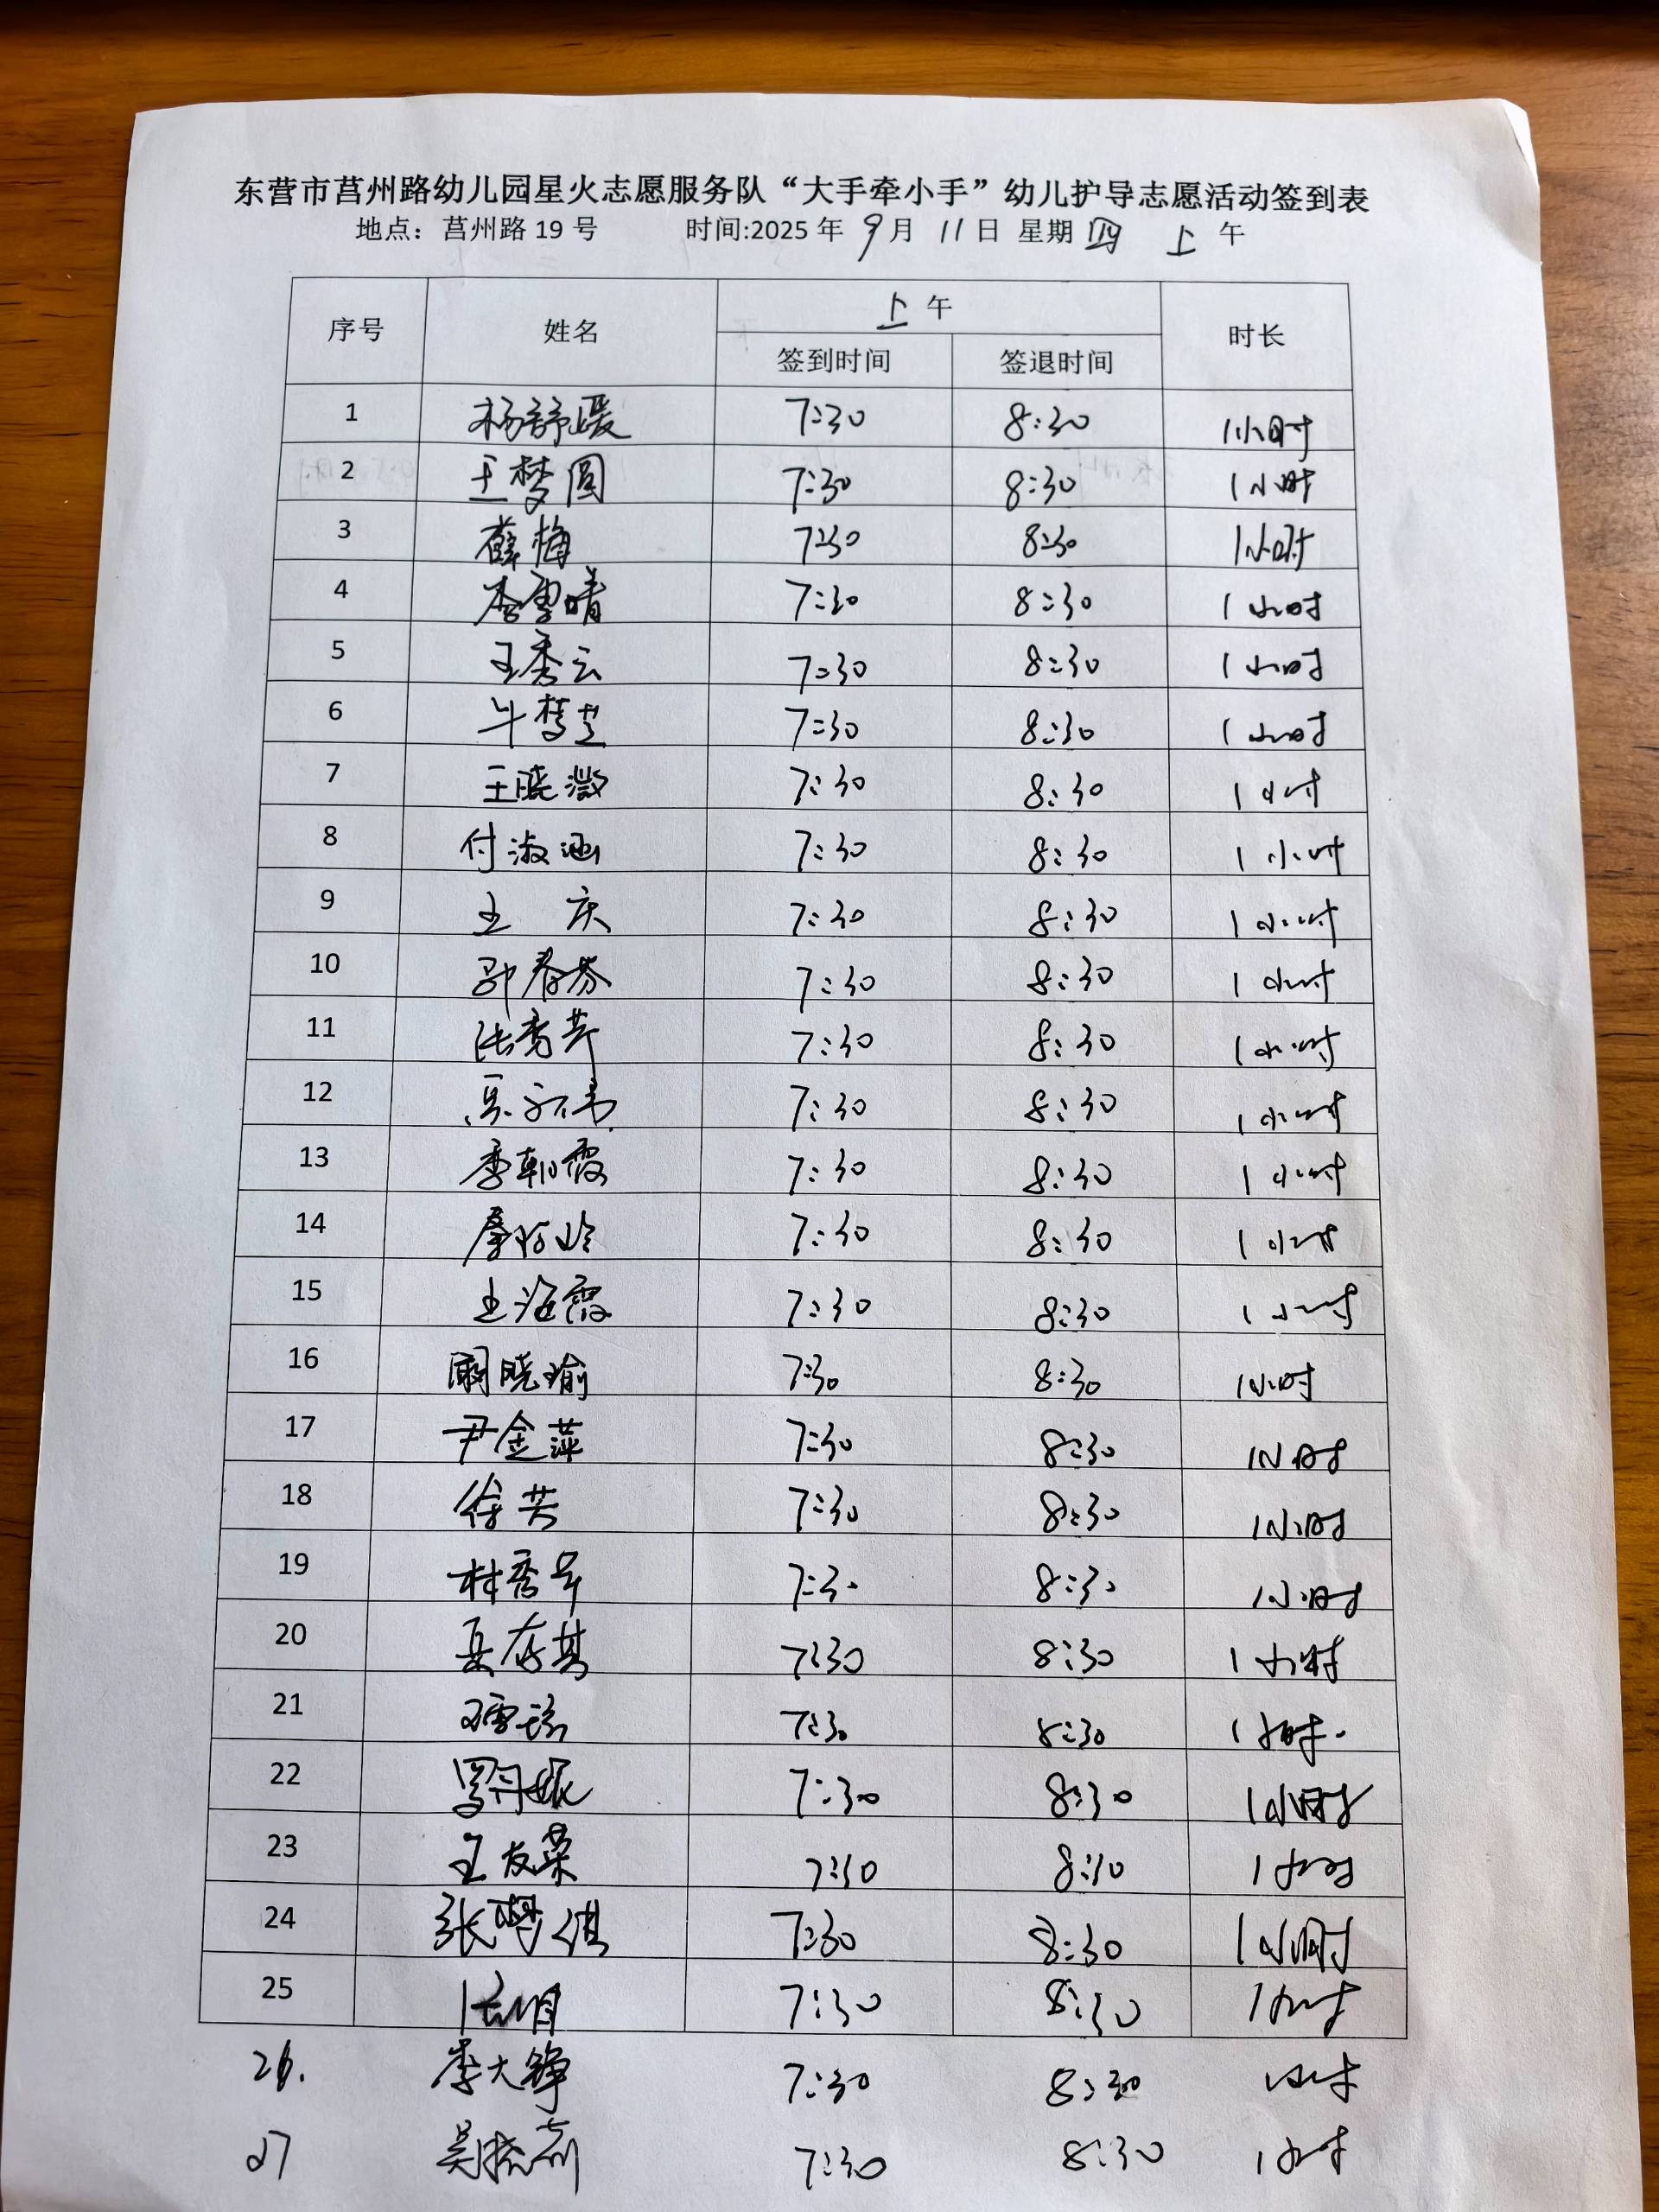 东营市莒州路幼儿园星火志愿服务队“大手牵小手”幼儿护导志愿活动签到表
地点：莒州路 19 号 时间:2025 年 9 月 11 日 星期 四 上 午
序号 姓名 上 午 时长
签到时间 签退时间
1 杨舒媛 7:30 8:30 1小时
2 王梦圆 7:30 8:30 1小时
3 薛梅 7:30 8:30 1小时
4 李雪晴 7:30 8:30 1小时
5 王秀云 7:30 8:30 1小时
6 牛梦芝 7:30 8:30 1小时
7 王晓微 7:30 8:30 1小时
8 付淑涵 7:30 8:30 1小时
9 王庆 7:30 8:30 1小时
10 春芬 7:30 8:30 1小时
11 张秀芹 7:30 8:30 1小时
12 7:30 8:30 1小时
13 李朝霞 7:30 8:30 1小时
14 7:30 8:30 1小时
15 王海霞 7:30 8:30 1小时
16 晓瑜 7:30 8:30 1小时
17 尹金萍 7:30 8:30 1小时
18 徐芸 7:30 8:30 1小时
19 林秀 7:30 8:30 1小时
20 7:30 8:30 1小时
21 7:30 8:30 1小时.
22 罗丹妮 7:30 8:30 1小时
23 王友荣 7:30 8:30 1小时
24 张 7:30 8:30 1小时
25 7:30 8:30 1小时
26. 李大铮 7:30 8:30 1小时
27 吴 7:30 8:30 1小时